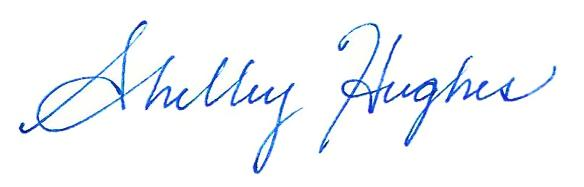 Shelley Hughes